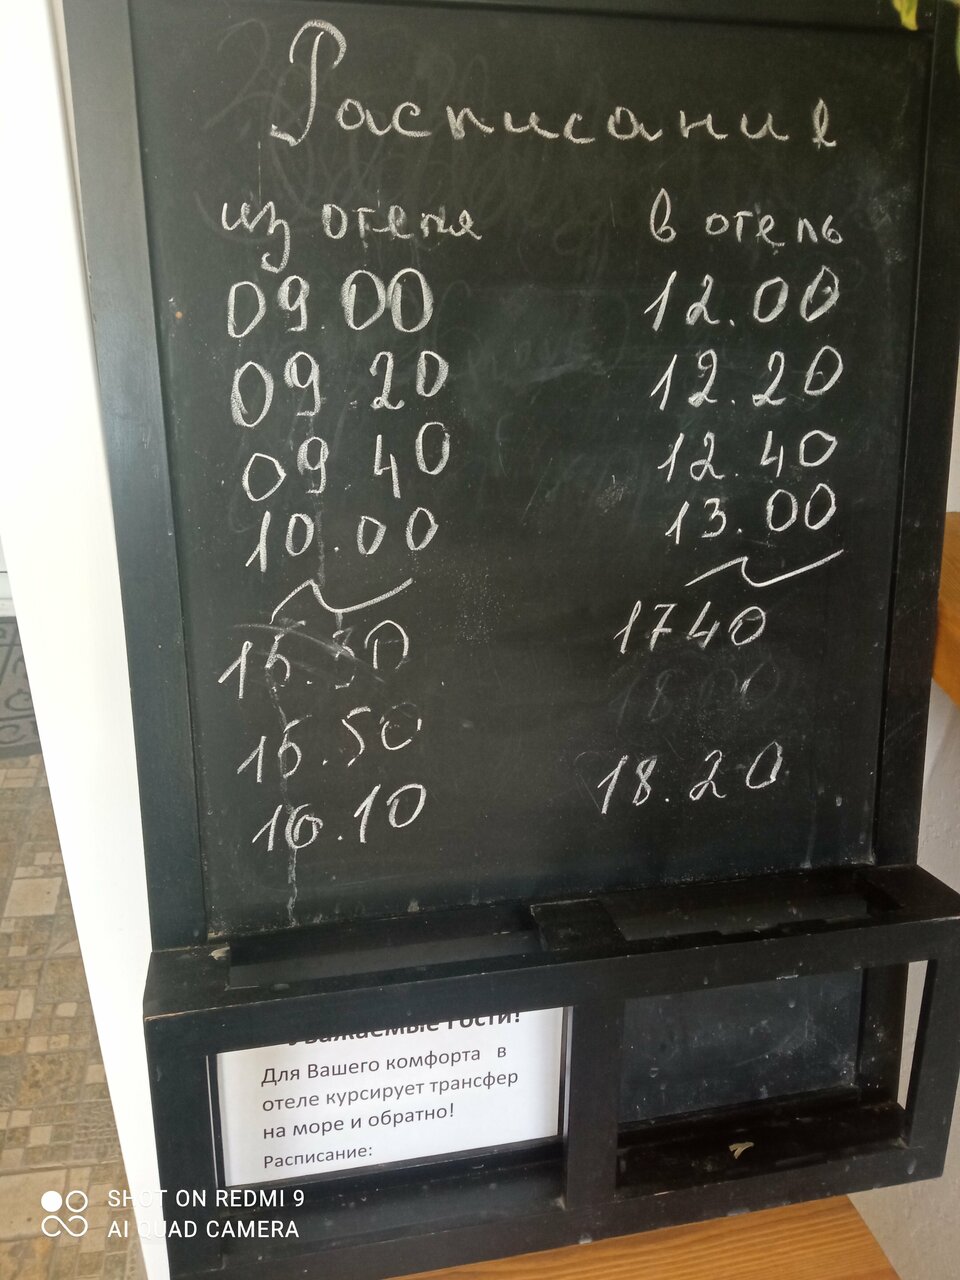 Расписание
из отеля в отель
09 00 12.00
09.20 12.20
09 40 12.40
10.00 13.00
15.30 17 40
18.00
15.50
16.10 18.20
Уважаемые гости!
Для Вашего комфорта в
отеле курсирует трансфер
на море и обратно!
Расписание:
SHOT ON REDMI 9
AI QUAD CAMERA